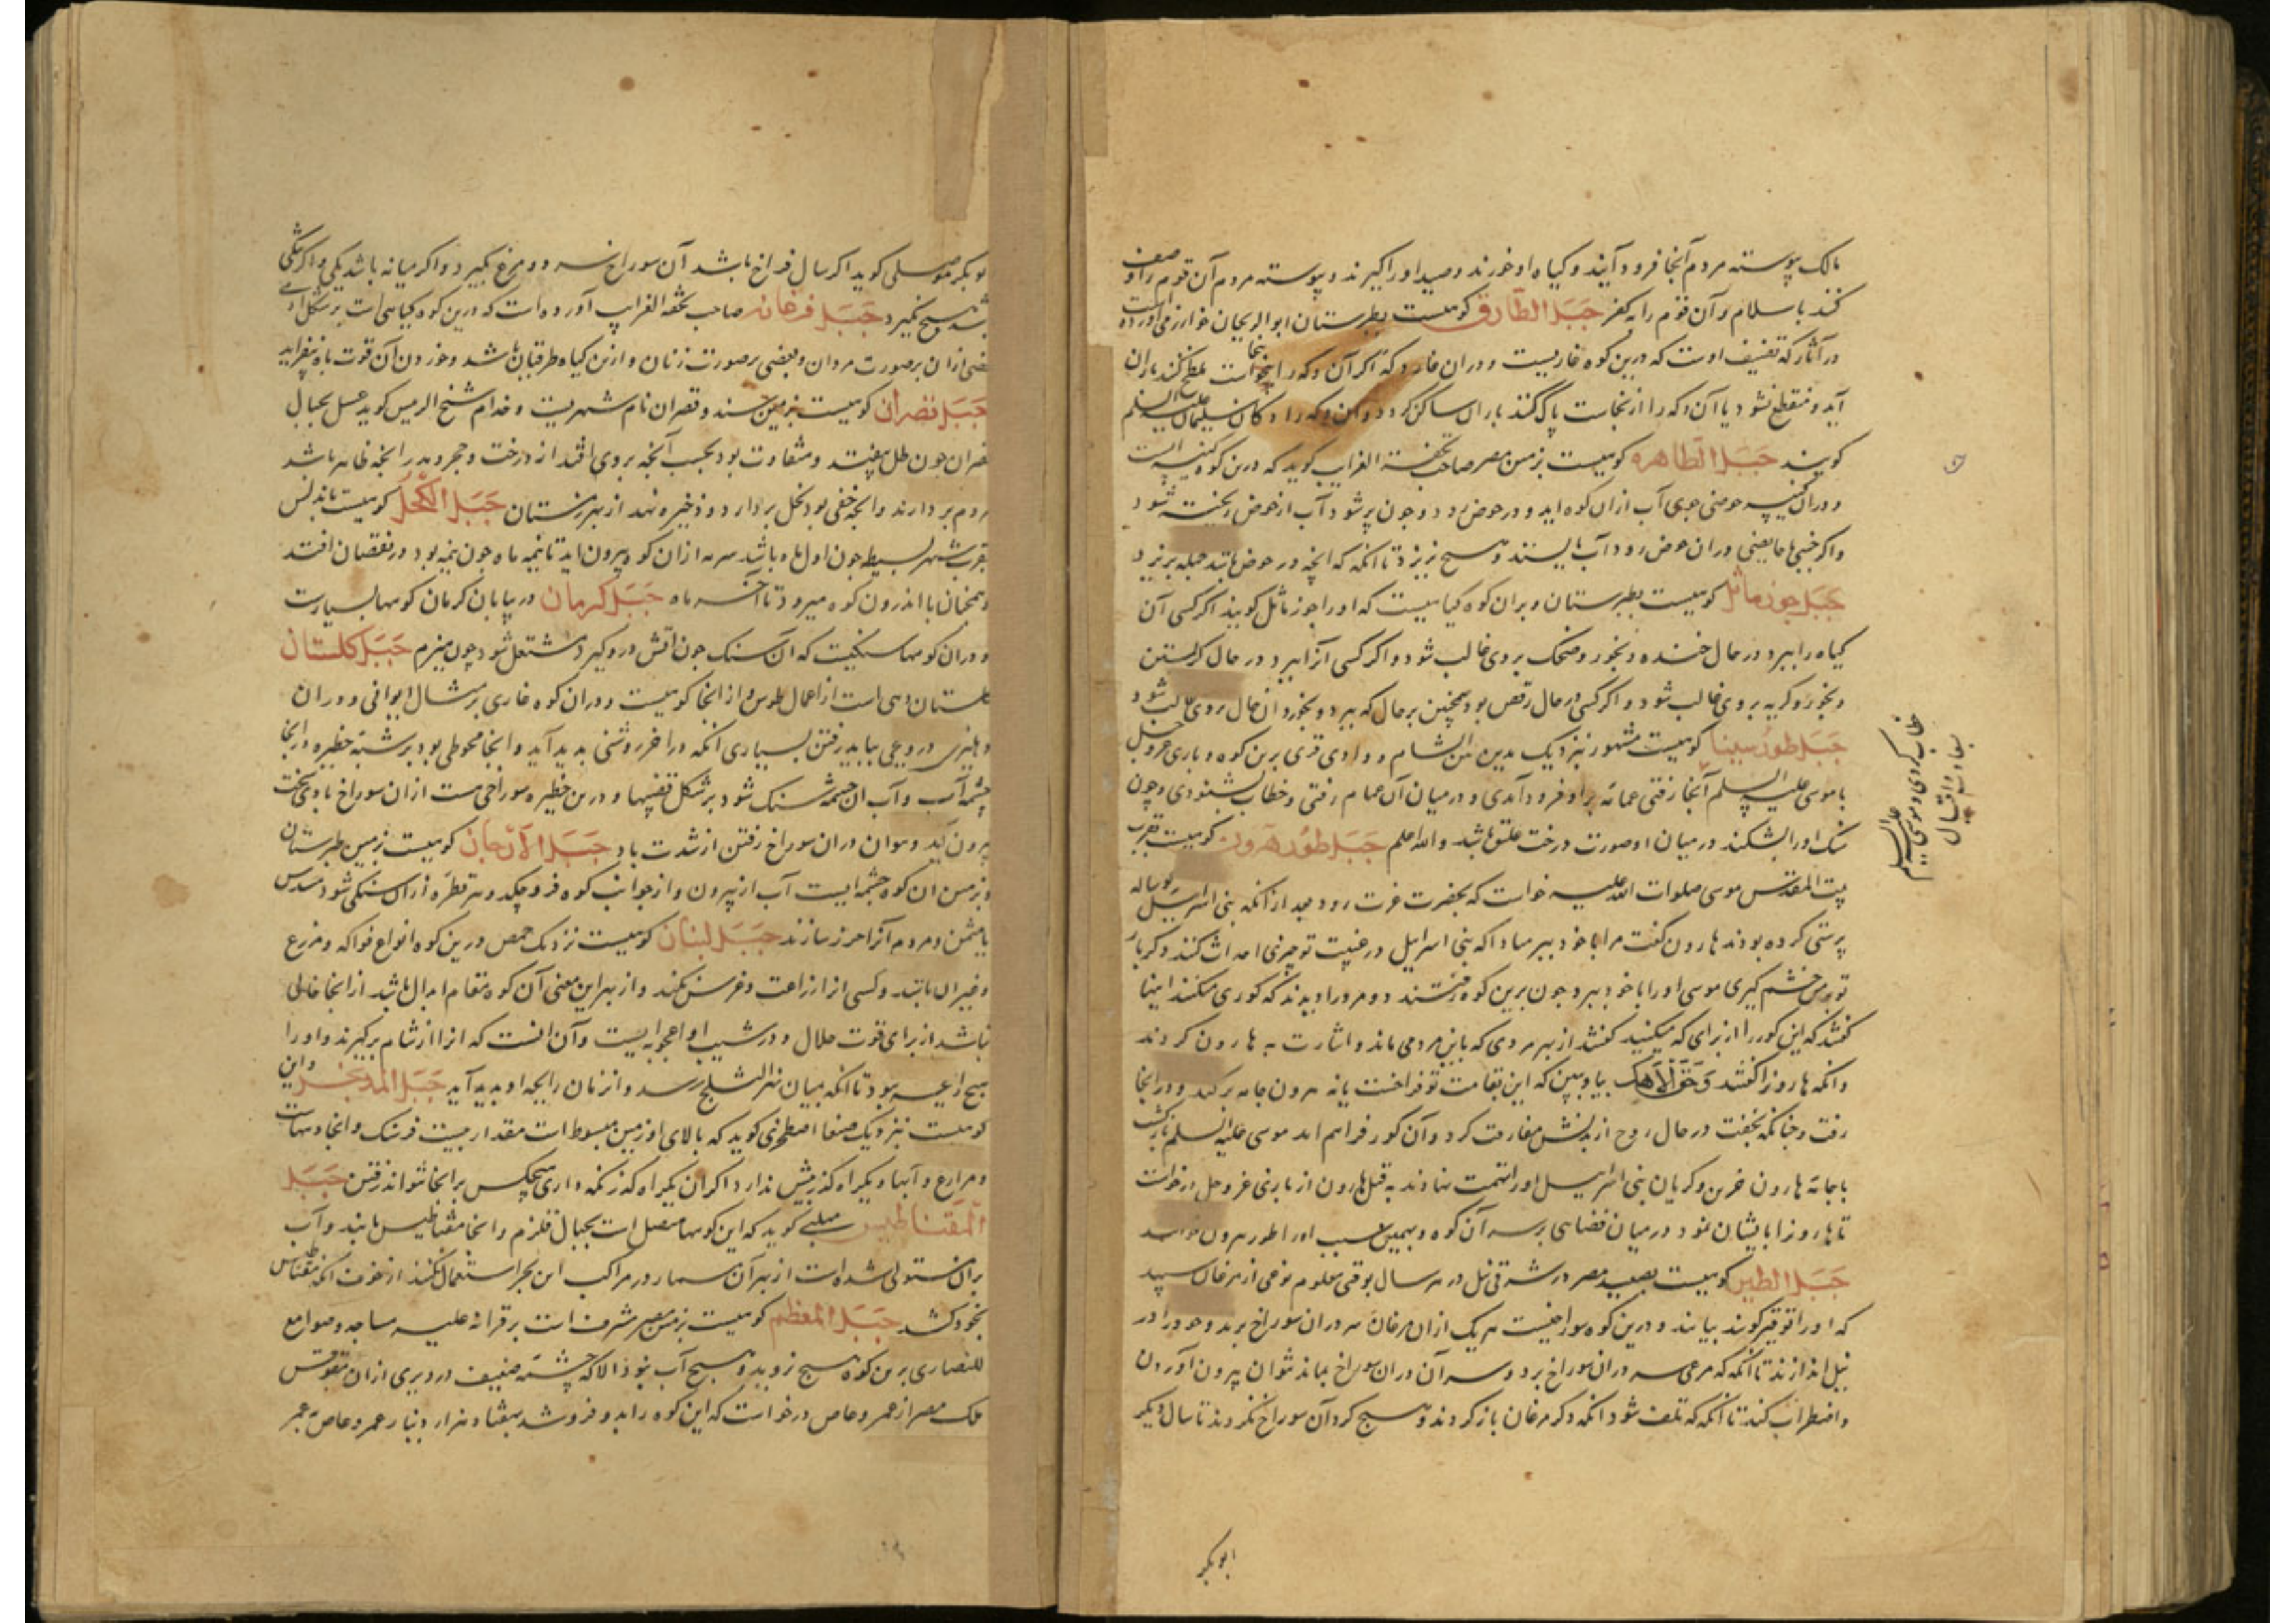 مالک پیوسته مردم آنجا فرود آیند و کیاه او خورند و صید او را کیرند و پیوسته مردم آن قوم را وصف
کنند باسلام و آن قوم را بکفر جَبَل الطّارق کوهیست بطبرستان ابوالریحان خوارزمی آورده است
در آثار که تصنیف اوست که درین کوه غاریست و دران غار دکهٔ اکر آن دکه را بنجاست ملطخ کنند باران
آید و منقطع نشود تا آن دکه را از نجاست پاک کنند باران ساکن کردد و آن دکه را دکان سلیمان علیه السلم
کویند جَبَل الطّاهره کوهیست بزمین مصر صاحب تحفة الغرایب کوید که درین کوه کنیسه ایست
و دران کنیسه حوضی جوی آب ازان کوه اید و در حوض رود و چون پر شود آب از حوض ریخته شود
و اکر جنبی یا حایضی دران حوض رود آب بایستد و هیچ نریزد تا انکه که انچه در حوض باشد جمله بریزند
جَبَل جوز ماثل کوهیست بطبرستان و بران کوه کیاهیست که او را جوز ماثل کویند اکر کسی آن
کیاه را ببرد در حال خنده و بخورد ضحک بروی غالب شود و اکر کسی آنرا ببرد در حال کریستن
و بخورد کریه بروی غالب شود و اکر کسی در حال رقص بود همچنین بر حال که ببرد و بخورد آن حال بروی غالب شود
جَبَل طور سینا کوهیست مشهور بنزدیک مدین بین الشام و وادی قری برین کوه و باری عزوجل
با موسی علیه السلم آنجا رفتی غمامه بر او فرود آمدی و در میان آن غمام رفتی و خطاب بشنودی و چون
سنک او را بشکنند در میان او صورت درخت علیق باشد والله اعلم جَبَل طور هرون کوهیست بقرب
بیت المقدس موسی صلوات الله علیه خواست که بحضرت عزت رود بعد از انکه بنی اسرائیل کوساله
پرستی کرده بودند هارون کفت مرا با خود ببر مبادا که بنی اسرائیل در غیبت تو چیزی احداث کنند و دکر بار
تو بر من خشم کیری موسی او را با خود ببرد چون برین کوه رفتند دو مرد را دیدند که کوری میکنند اینها
کفتند که این کور را از برای که میکنید کفتند از بهر مردی که باین مرد می ماند و اشارت به هارون کردند
وانکه هارونرا کفتند وَحَقّ اِلٰهِک بیا و ببین که این بقامت تو فراخست یا نه هرون جامه برکند و درانجا
رفت و چنانکه بخفت در حال روح از بدنش مفارقت کرد و آن کور فراهم امد موسی علیه السلم بازکشت
با جامهٔ هارون حزین و کریان بنی اسرائیل او را تهمت نهادند به قتل هارون از باری عز و جل درخواست
تا هارونرا بایشان نمود در میان فضا بر سر آن کوه و بهمین سبب او را طور هرون خوانند
جَبَل الطیر کوهیست بصعید مصر در شرقی نیل در هر سال بوقتی معلوم نوعی از مرغان سپید
که او را بوقیر کویند بیایند و درین کوه سوراخیست هر یک ازان مرغان سر دران سوراخ برند و خود را در
نیل اندازند تا انکه که مرغی سر دران سوراخ برد و سر آن دران سوراخ بماند نتوان بیرون آوردن
و اضطراب کند تا انکه که تلف شود انکه دکر مرغان باز کردند و هیچ کرد آن سوراخ نکردند تا سال دیکر
خطاب کردی و موسی علیه السلم
ابوبکر
ابوبکر موصلی کوید اکر سال فراخ باشد آن سوراخ سر دو مرغ بکیرد و اکر میانه باشد یکی و اکر تنکی
باشد هیچ نکیرد جَبَل فرغانه صاحب تحفة الغرایب آورده است که درین کوه کیاهی است بر شکل آدمی
بعضی ازان بر صورت مردان و بعضی بر صورت زنان و ازین کیاه طرقیان باشد و خوردن آن قوت باه بیفزاید
جَبَل قصران کوهیست بزمین سند و قصران نام شهریست و خدام شیخ الرئیس کوید عسل بجبال
قصران چون طل بیفتد و متفاوت بود بحسب آنچه بروی افتد از درخت و حجر و مدر انچه ظاهر باشد
مردم بردارند و انچه خفی بود نحل بردارد و ذخیره نهد از بهر زمستان جَبَل الکُحل کوهیست باندلس
بقرب شهر بسیط چون اول ماه باشد سرمه ازان کوه بیرون اید تا نیمه ماه چون نیمه بود در نقصان افتد
و همچنان با اندرون کوه میرود تا آخر ماه جَبَل کرمان در بیابان کرمان کوهها بسیارست
و دران کوهها سنکیست که آن سنک چون آتش درو کیرد مشتعل شود چون هیزم جَبَل کلستان
کلستان دهی است از اعمال طوس و از انجا کوهیست و دران کوه غاری بر مثال ایوانی و دران
دهلیزی در وی بباید رفتن بسیاری انکه در اخر روشنی بدید آید و انجا محوطی بود بر شبه حظیره در انجا
چشمه آب و آب ان چشمه سنک شود بر شکل قضیبها و درین حظیره سوراخی هست ازان سوراخ بادی سخت
بیرون آید و نتوان دران سوراخ رفتن از شدت باد جَبَل الارجان کوهیست بزمین طبرستان
و بزمین ان کوه چشمه ایست آب از بیرون و از جوانب کوه فرو چکد و هر قطره ازان سنکی شود مسدس
یا مثمن و مردم آنرا خرز سازند جَبَل لبنان کوهیست نزدیک حمص درین کوه انواع فواکه و مزرع
و غیر ان باشد و کسی انرا زراعت و غرس نکند و از بهر این معنی آن کوه مقام ابدال باشد از انجا خالی
نباشد از برای قوت حلال و در شیب او اعجوبه ایست و آن انست که انرا از شام برکیرند و او را
هیچ رایحه نبود تا انکه بمیان نهر الثلج رسد و انزمان رایحه او بدید آید جَبَل المدیخره و این
کوهیست بنزدیک صنعا اصطخری کوید که بالای او زمین مبسوط است مقدار بیست فرسنک و انجا دیهاست
و مزارع و آبها و یکراه کذر بیش ندارد اکر آن یکراه که نکه داری هیچکس بر انجا نتواند رفتن جَبَل
المقناطیس مهلبی کوید که این کوهها متصل است بجبال قلزم و انجا مقناطیس یابند و آب
بران مستولی شده است از بهر آن مسمار در مراکب این بحر استعمال نکنند از خوف انکه مقناطیس
بخود کشد جَبَل المقطم کوهیست بزمین مصر مشرف است بر قرافه علیه مساجد و صوامع
للنصاری برین کوه هیچ نروید و هیچ آب نبود الا که چشمهٔ ضعیف در دیری ازان مقوقس
ملک مصر از عمرو عاص درخواست که این کوه را بدو فروشد بهفتاد هزار دینار عمرو عاص بعمر